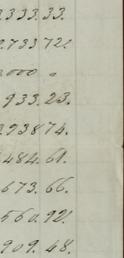 .333.33.
.733 72.
.000 "
933.23.
.938 74.
484.61.
673.66.
560.92.
909.48.